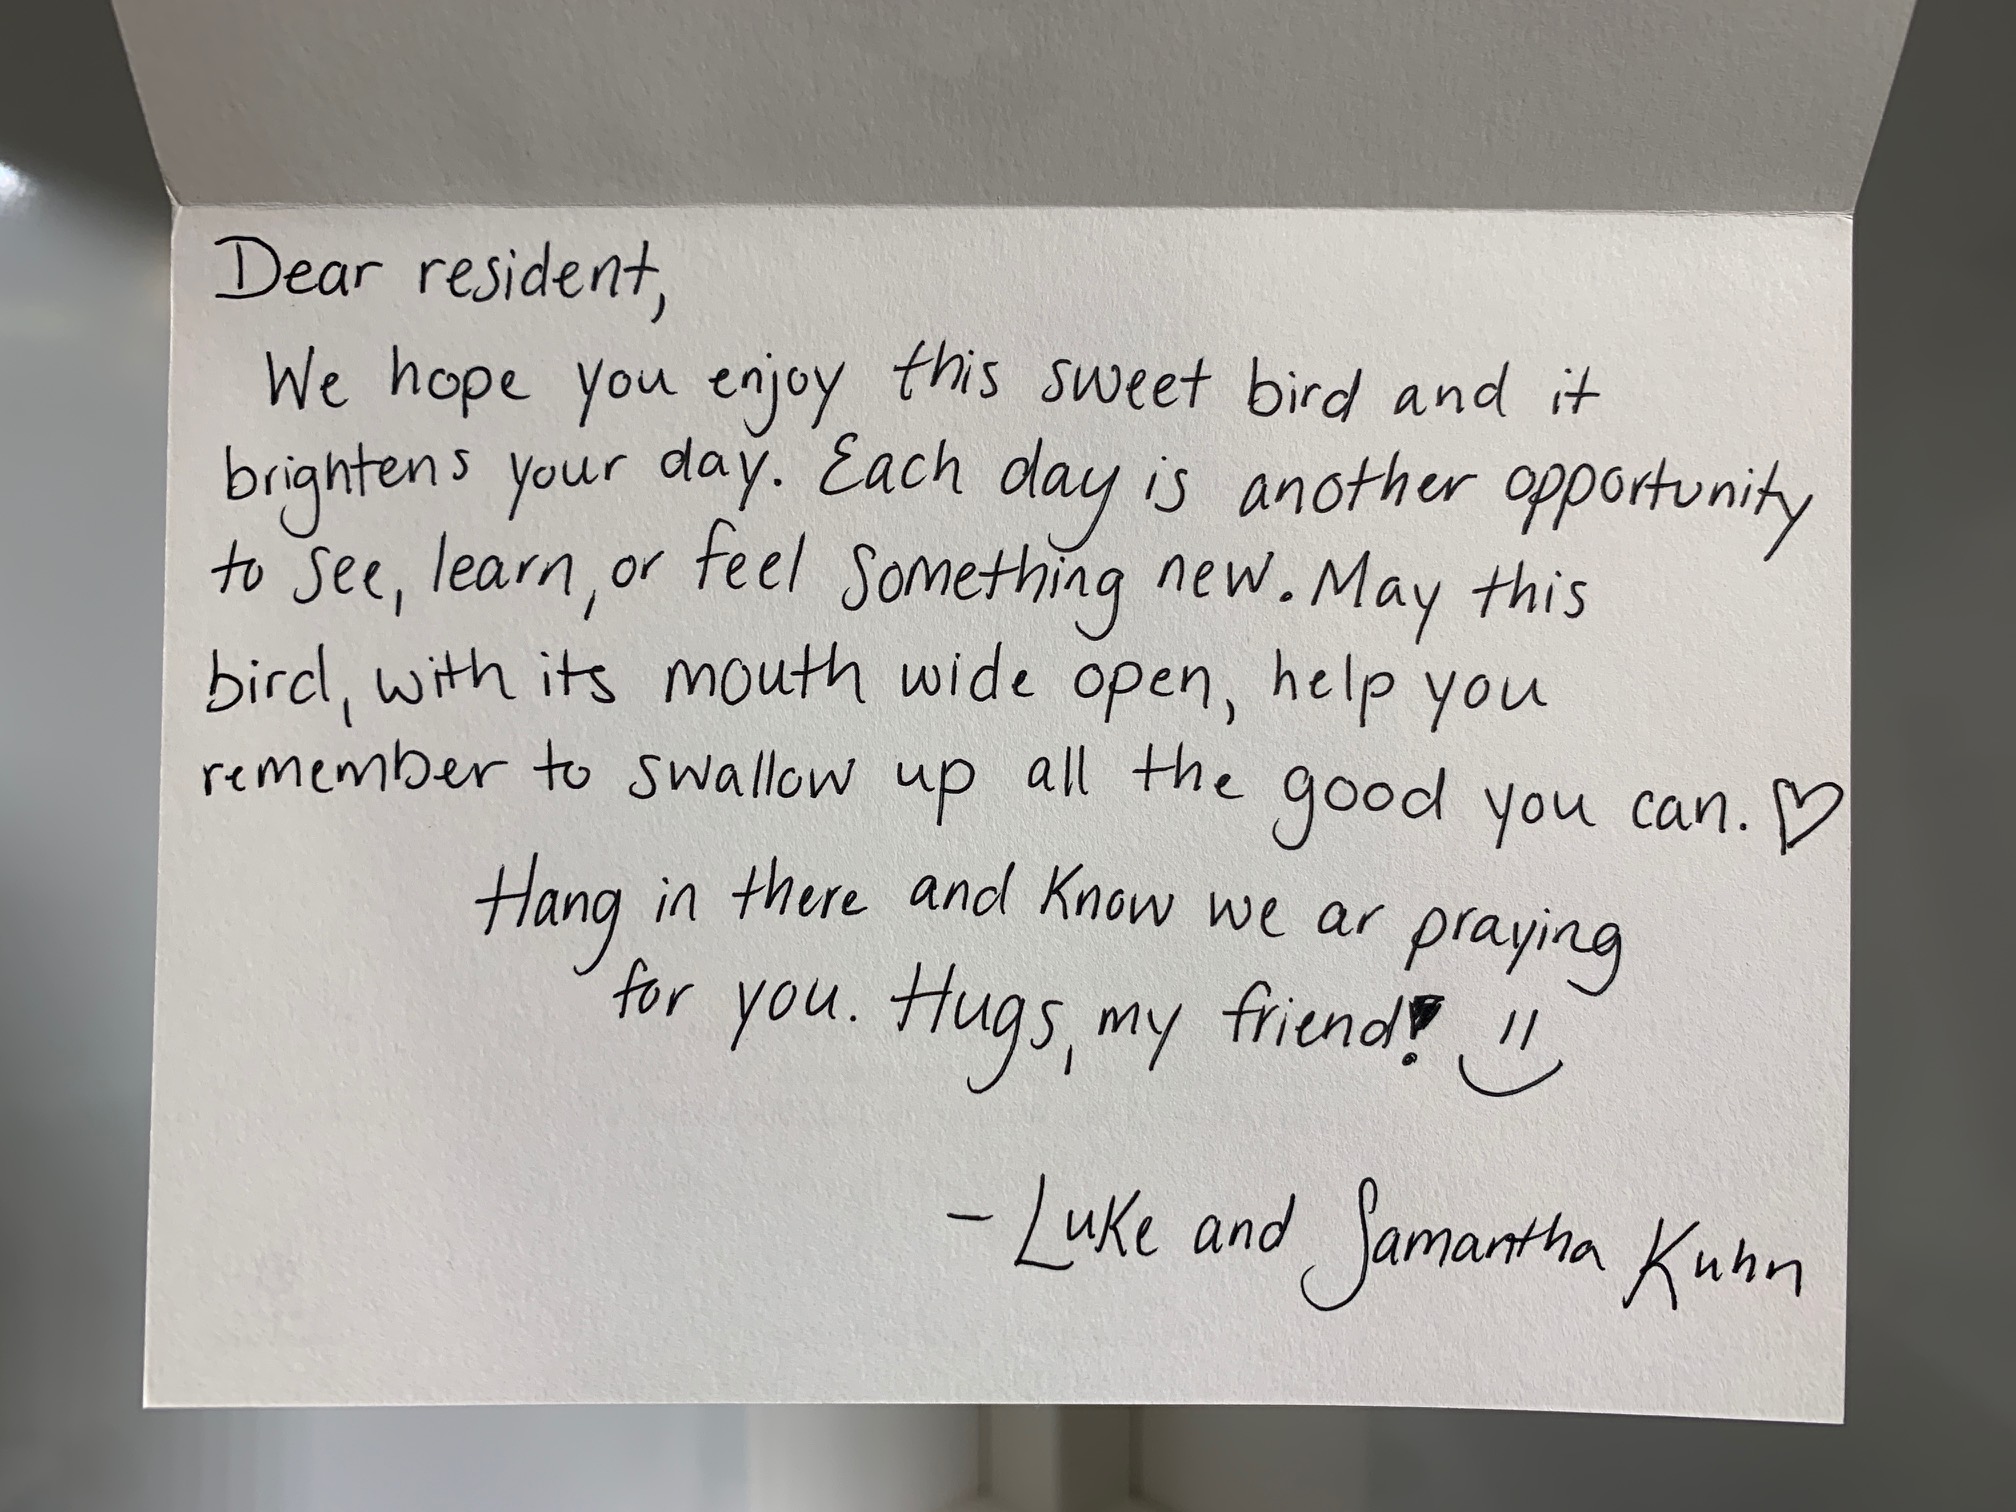 Dear resident,
We hope you enjoy this sweet bird and it
brightens your day. Each day is another opportunity
to see, learn, or feel something new. May this
bird, with its mouth wide open, help you
remember to swallow up all the good you can. ♡
Hang in there and know we ar praying
for you. Hugs, my friend! :)
- Luke and Samantha Kuhn